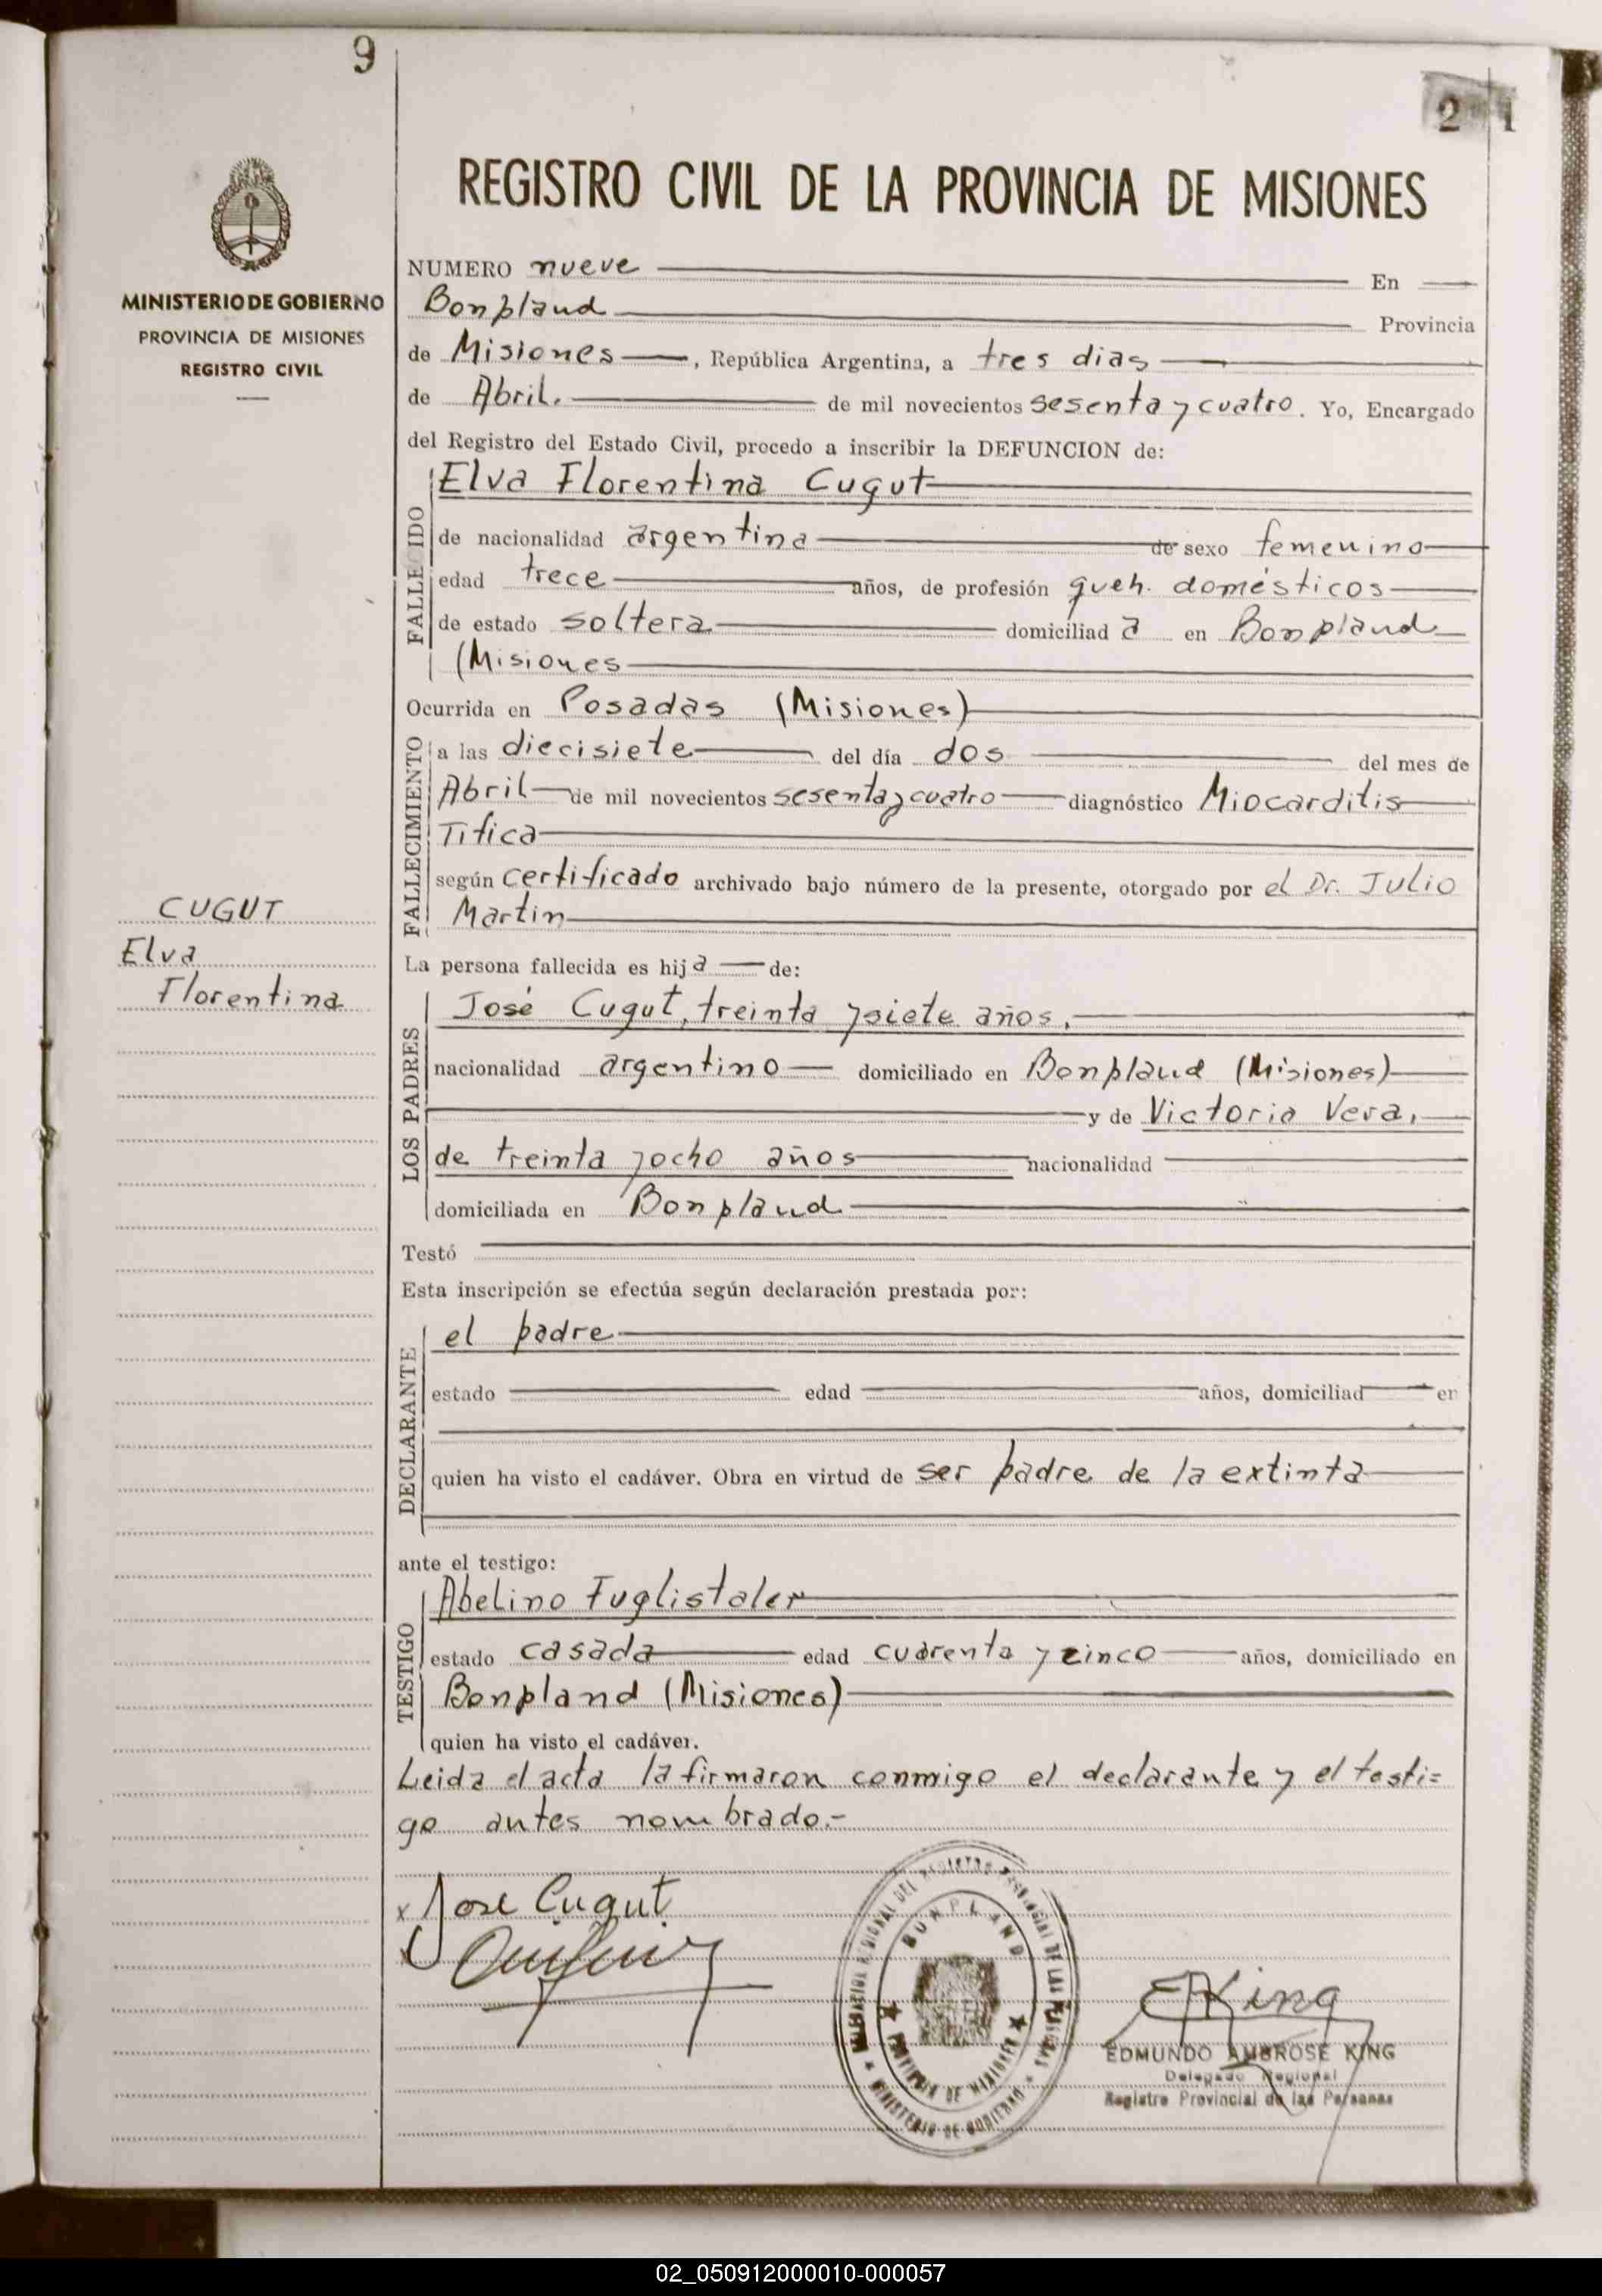 9
2 1
MINISTERIO DE GOBIERNO
PROVINCIA DE MISIONES
REGISTRO CIVIL
CUGUT
Elva
Florentina
REGISTRO CIVIL DE LA PROVINCIA DE MISIONES
NUMERO nueve En
Bonpland Provincia
de Misiones, República Argentina, a tres dias
de Abril. de mil novecientos sesenta y cuatro. Yo, Encargado
del Registro del Estado Civil, procedo a inscribir la DEFUNCION de:
FALLECIDO
Elva Florentina Cugut
de nacionalidad argentina de sexo femenino
edad trece años, de profesión queh. domésticos
de estado soltera domiciliad a en Bonpland
(Misiones
Ocurrida en Posadas (Misiones)
FALLECIMIENTO
a las diecisiete del día dos del mes de
Abril de mil novecientos sesenta y cuatro diagnóstico Miocarditis
Tifica
según certificado archivado bajo número de la presente, otorgado por el Dr. Julio
Martin
La persona fallecida es hij a de:
LOS PADRES
José Cugut, treinta y siete años,
nacionalidad argentino domiciliado en Bonpland (Misiones)
y de Victoria Vera,
de treinta y ocho años nacionalidad
domiciliada en Bonpland
Testó
Esta inscripción se efectúa según declaración prestada por:
DECLARANTE
el padre
estado edad años, domiciliad en
quien ha visto el cadáver. Obra en virtud de ser padre de la extinta
ante el testigo:
TESTIGO
Abelino Fuglistaler
estado casada edad cuarenta y cinco años, domiciliado en
Bonpland (Misiones)
quien ha visto el cadáver.
Leida el acta la firmaron conmigo el declarante y el testi=
go antes nombrado.-
x Jose Cugut
BONPLAND
PROVINCIA DE MISIONES
MINISTERIO DE GOBIERNO
EKing
EDMUNDO AMBROSE KING
Delegado Regional
Registro Provincial de las Personas
02_050912000010-000057